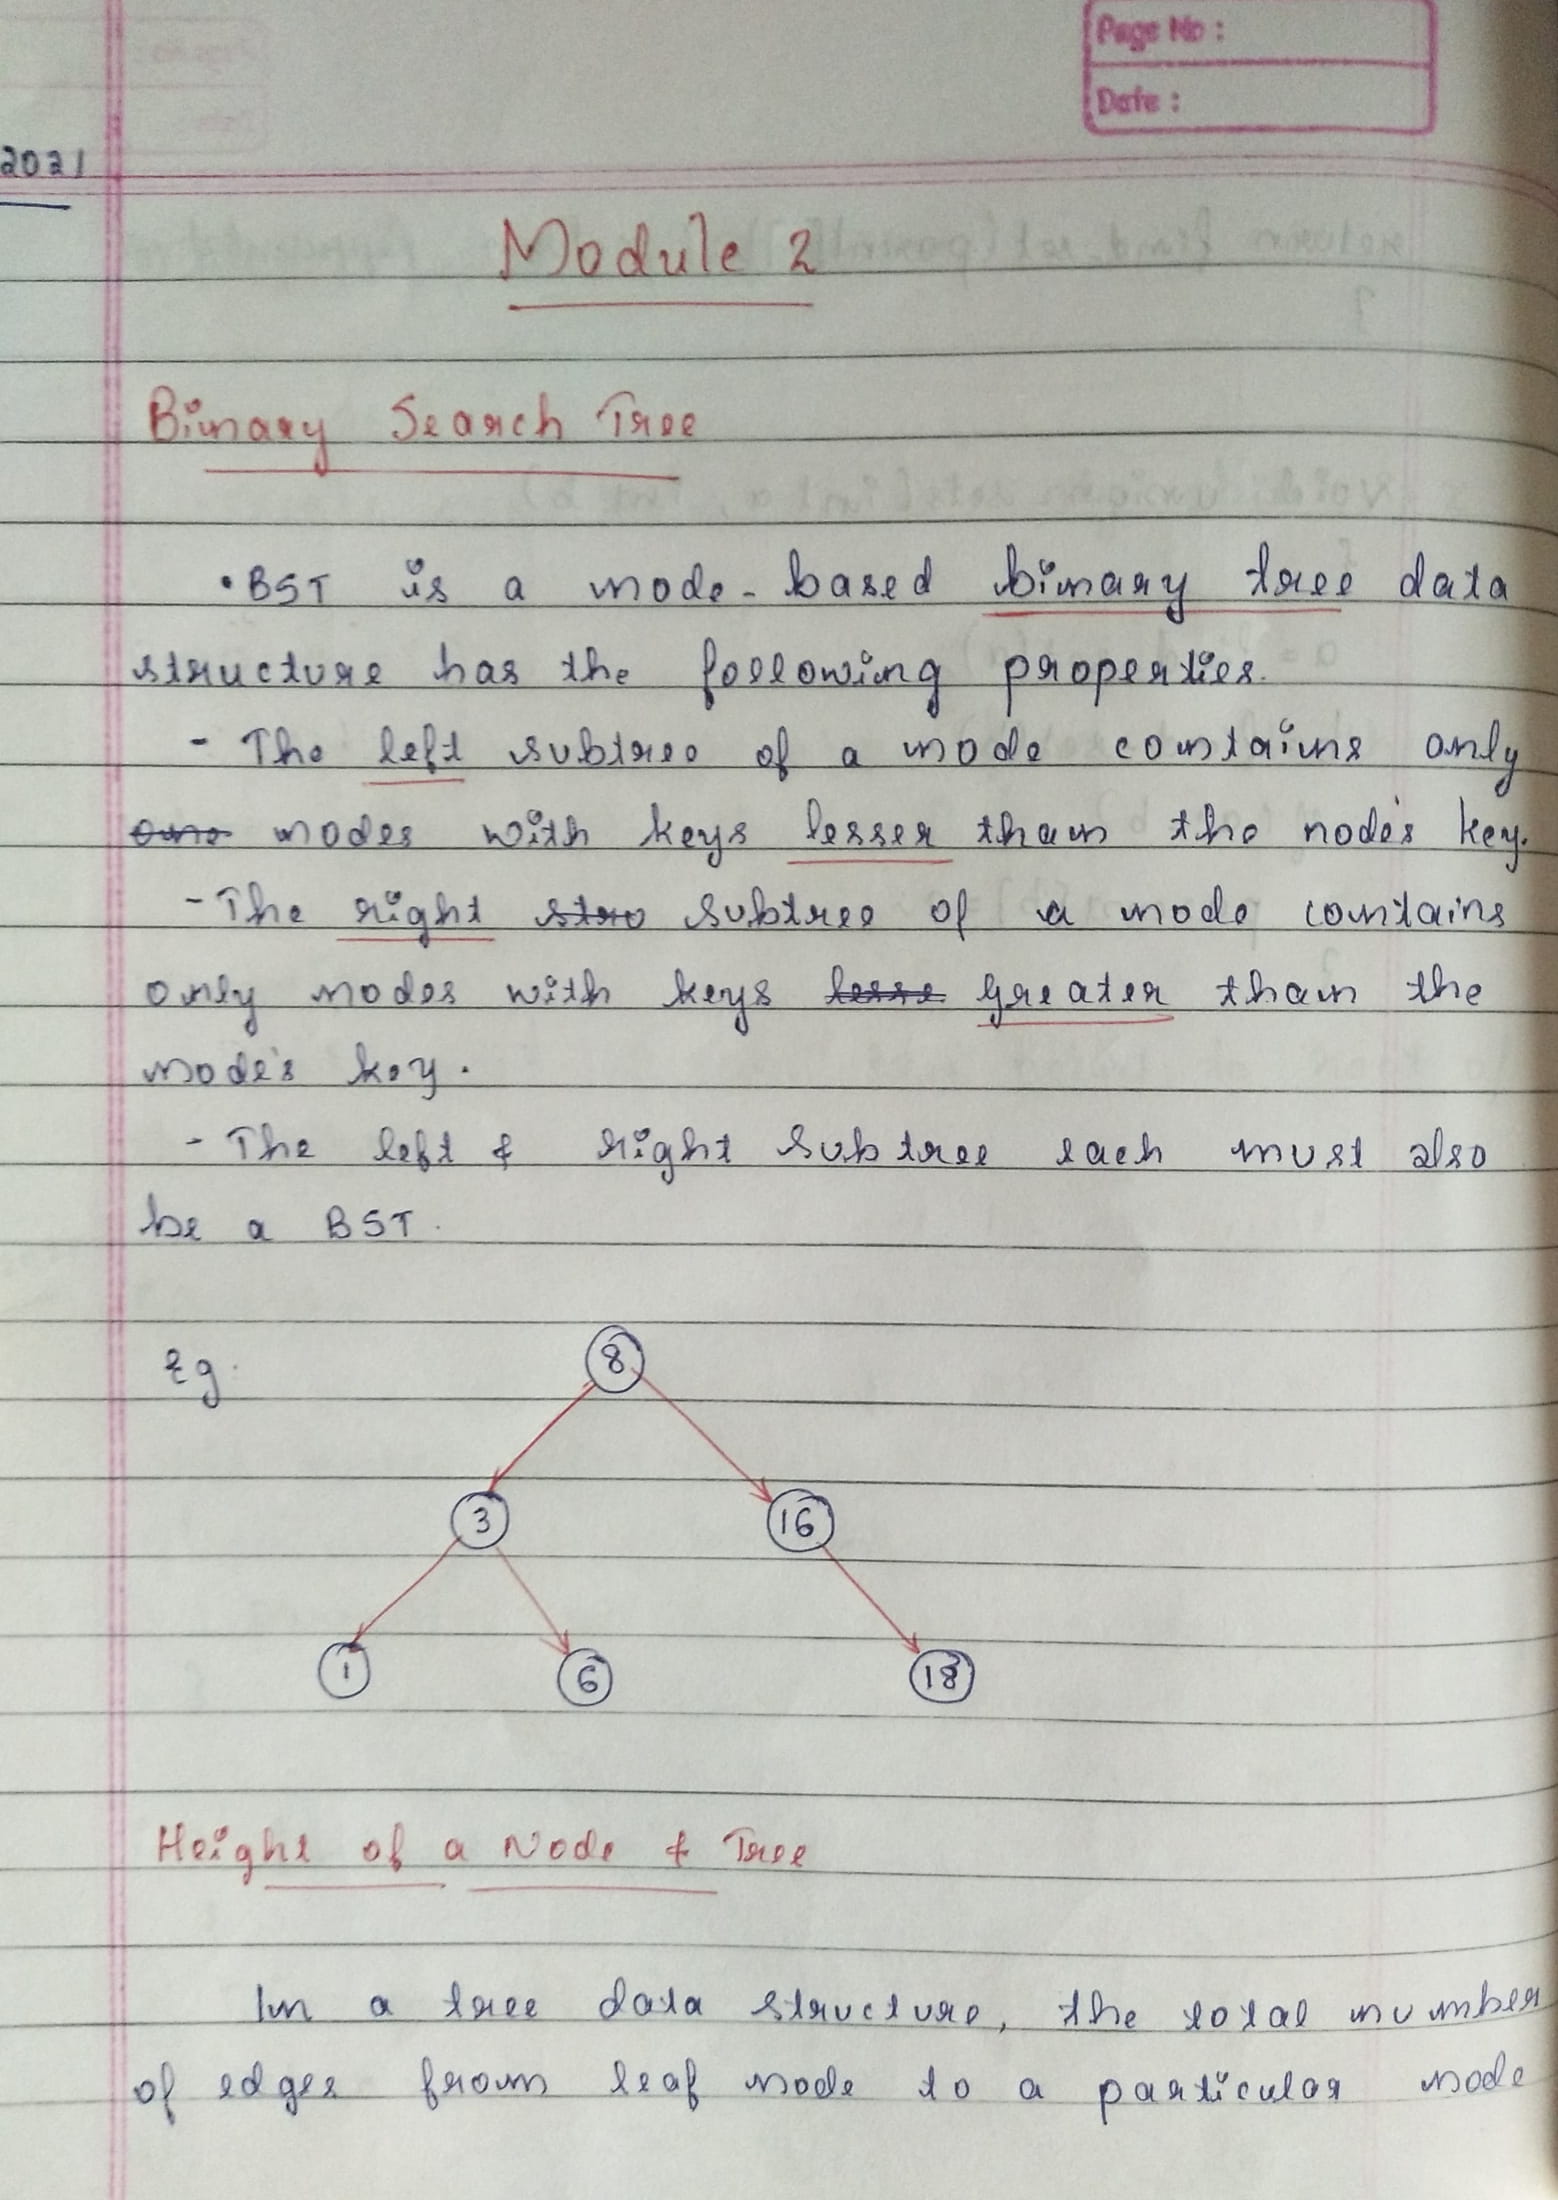 Page No :
Date :
2021
Module 2
Binary Search Tree
• BST is a node-based binary tree data
structure has the following properties.
- The left subtree of a node contains only
one nodes with keys lesser than the node's key.
- The right stre subtree of a node contains
only nodes with keys lesse greater than the
node's key.
- The left & right subtree each must also
be a BST.
Eg.
8
3 16
1 6 18
Height of a Node & Tree
In a tree data structure, the total number
of edges from leaf node to a particular node